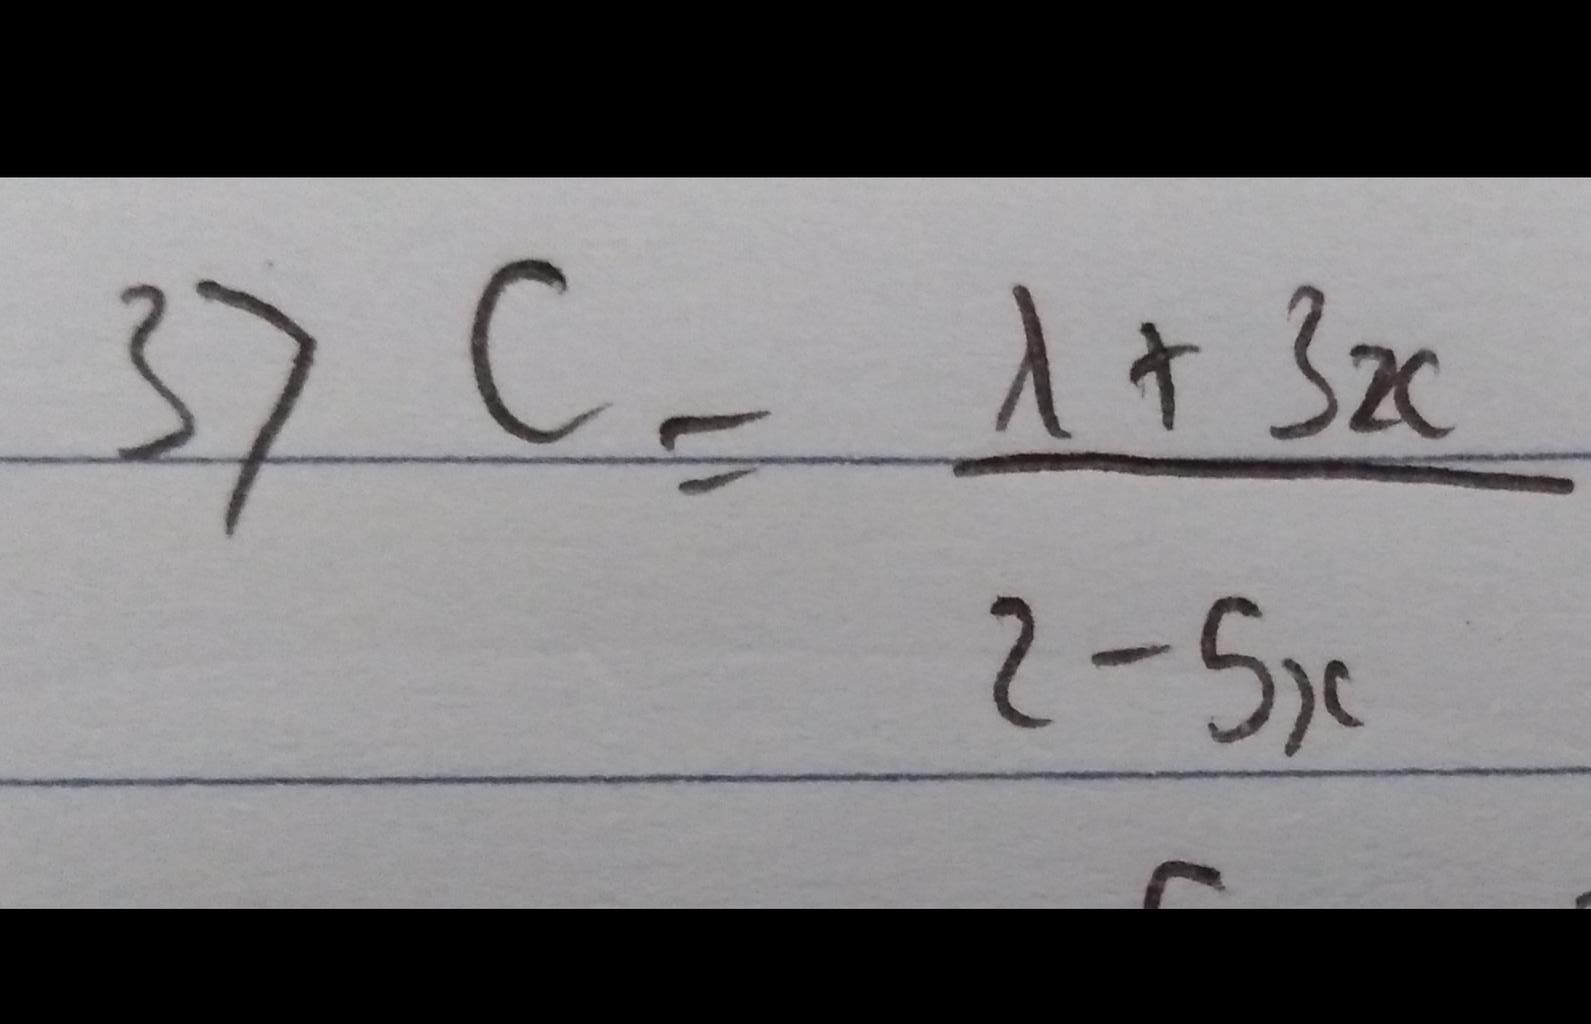 37 C = λ + 3x
2 - 5x